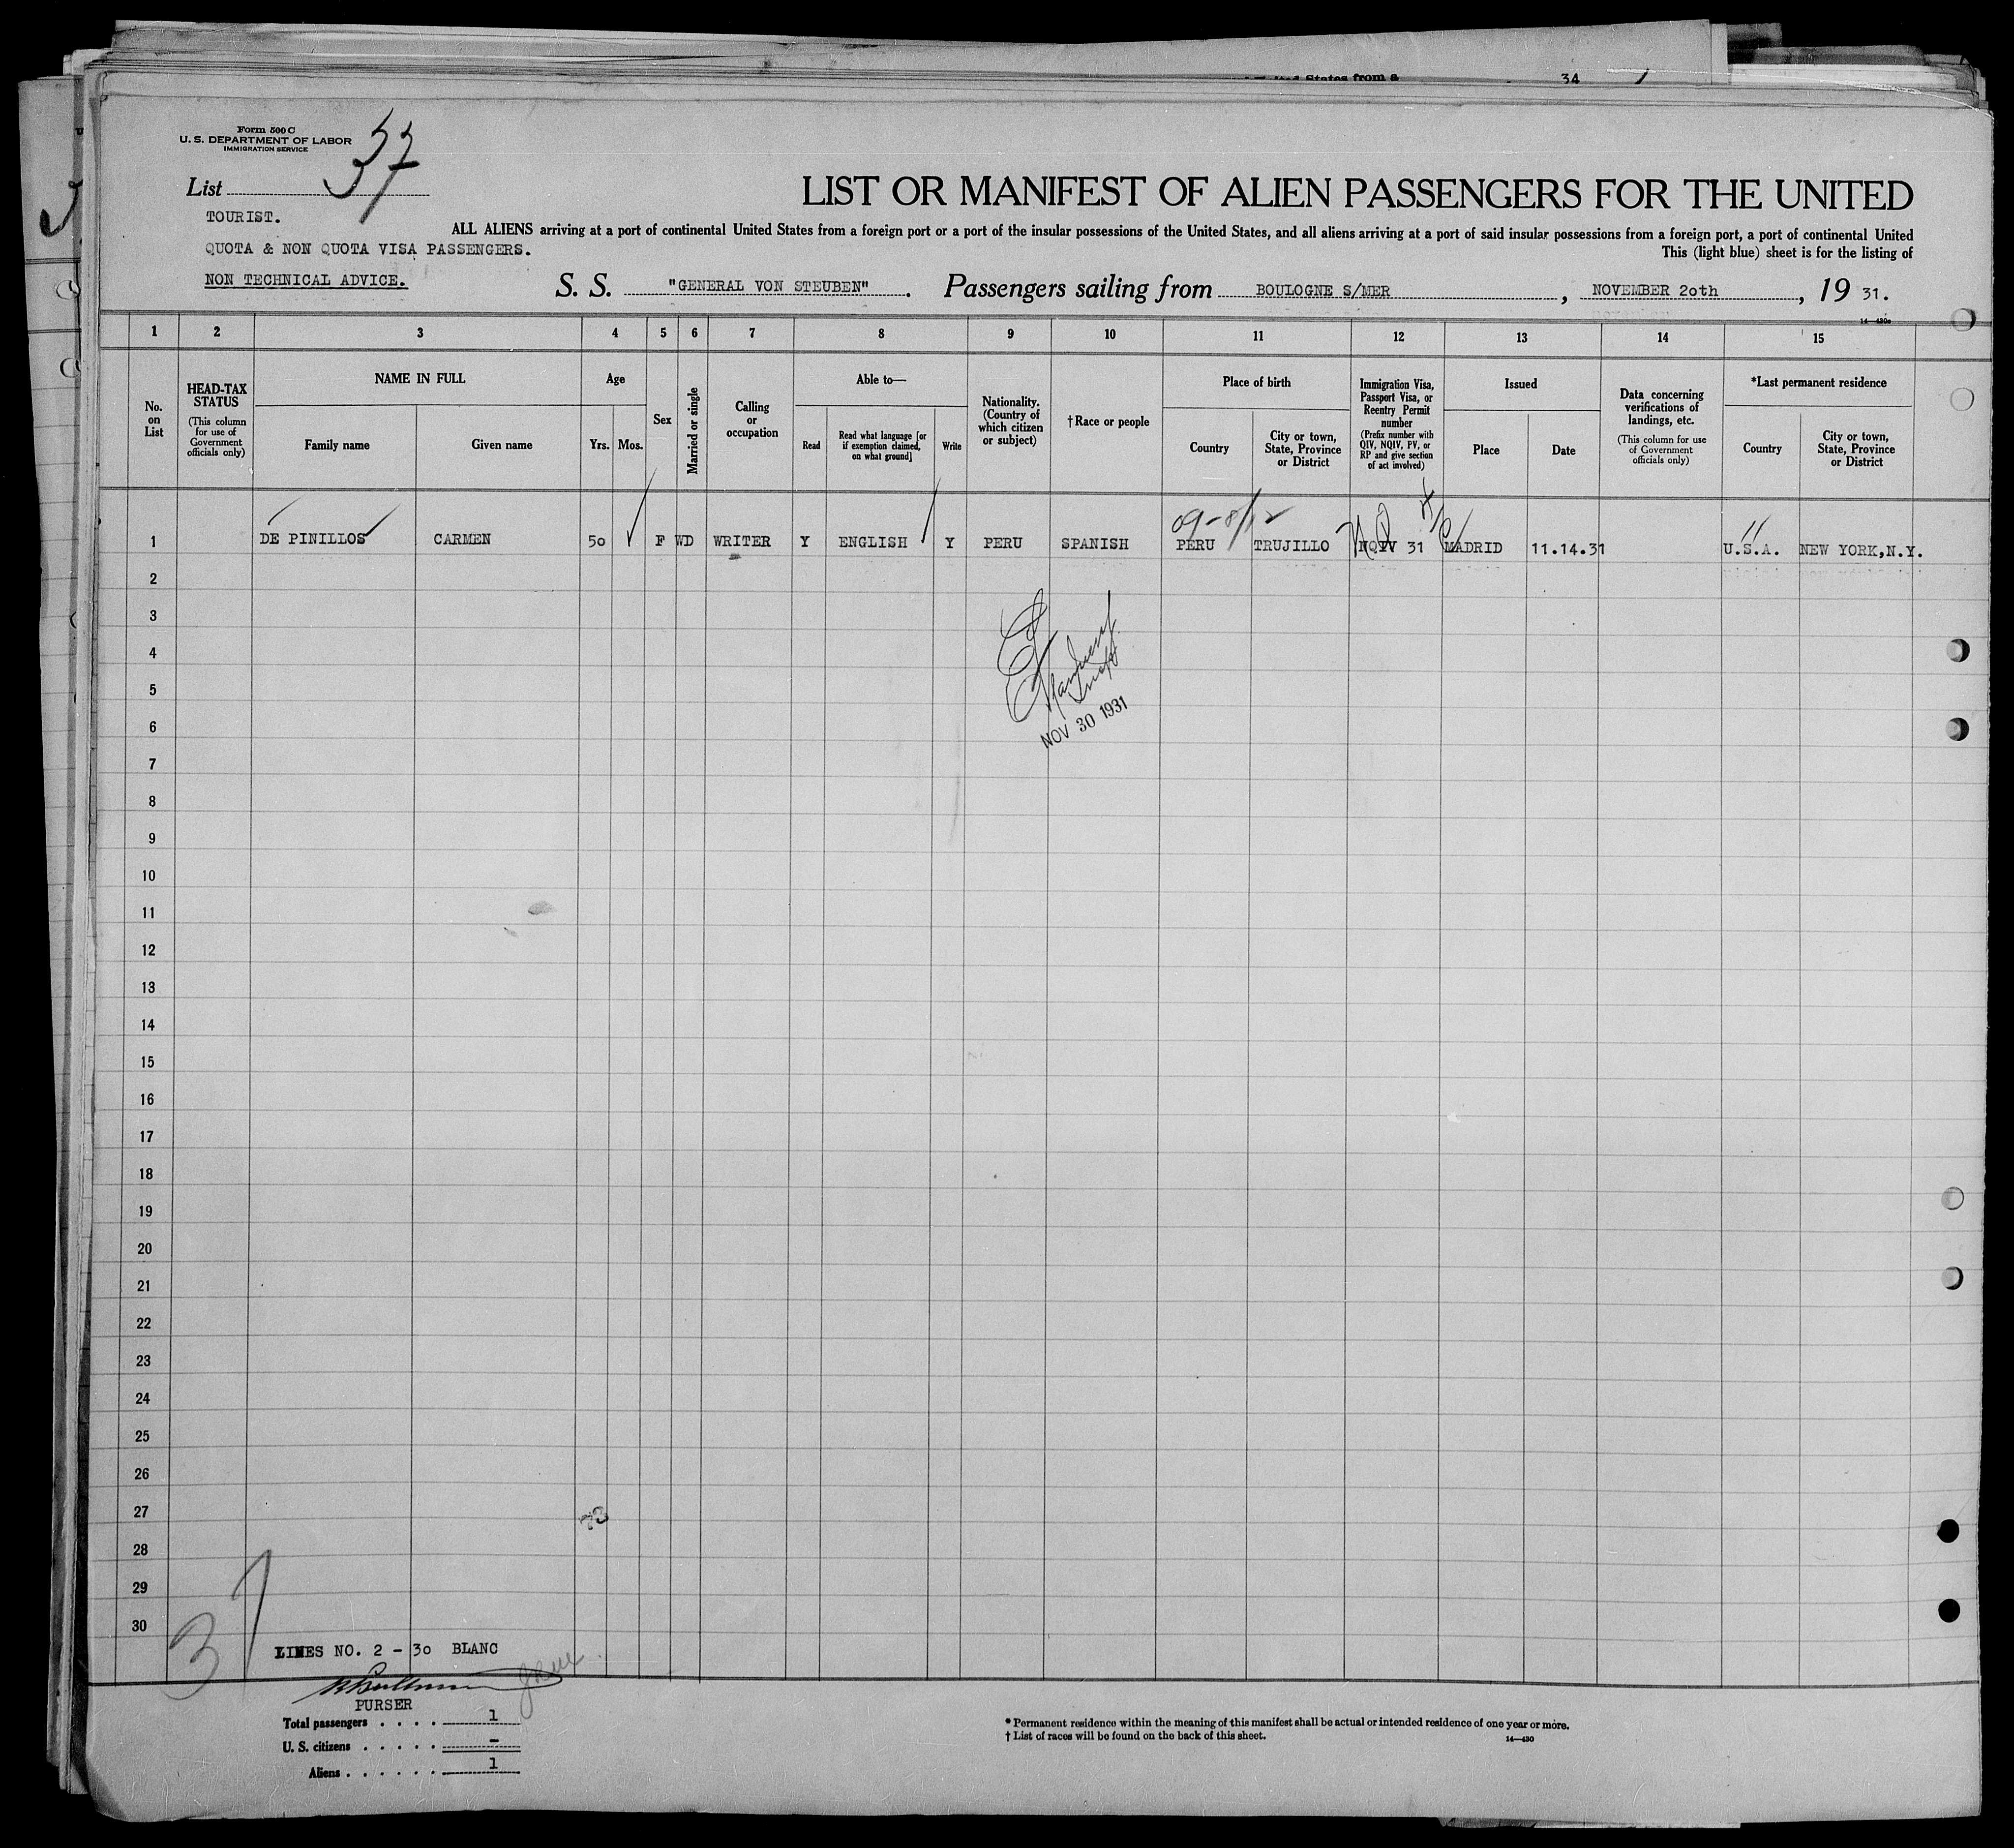 ted States from a 34
Form 500 C
U. S. DEPARTMENT OF LABOR
IMMIGRATION SERVICE
List 37
TOURIST.
QUOTA & NON QUOTA VISA PASSENGERS.
NON TECHNICAL ADVICE.
LIST OR MANIFEST OF ALIEN PASSENGERS FOR THE UNITED
ALL ALIENS arriving at a port of continental United States from a foreign port or a port of the insular possessions of the United States, and all aliens arriving at a port of said insular possessions from a foreign port, a port of continental United
This (light blue) sheet is for the listing of
S. S. "GENERAL VON STEUBEN". Passengers sailing from BOULOGNE S/MER, NOVEMBER 20th, 19 31.
14—430c
1 2 3 4 5 6 7 8 9 10 11 12 13 14 15
No. on List
HEAD-TAX STATUS
(This column for use of Government officials only)
NAME IN FULL
Family name
Given name
Age
Yrs. Mos.
Sex
Married or single
Calling or occupation
Able to—
Read
Read what language [or if exemption claimed, on what ground]
Write
Nationality. (Country of which citizen or subject)
†Race or people
Place of birth
Country
City or town, State, Province or District
Immigration Visa, Passport Visa, or Reentry Permit number
(Prefix number with QIV, NQIV, PV, or RP and give section of act involved)
Issued
Place
Date
Data concerning verifications of landings, etc.
(This column for use of Government officials only)
*Last permanent residence
Country
City or town, State, Province or District
09-8/12
1 DE PINILLOS CARMEN 50 F WD WRITER Y ENGLISH Y PERU SPANISH PERU TRUJILLO NQIV 31 MADRID 11.14.31 U.S.A. NEW YORK,N.Y.
2
3
4
5
6
NOV 30 1931
7
8
9
10
11
12
13
14
15
16
17
18
19
20
21
22
23
24
25
26
27
28
29
30
37
LINES NO. 2 - 30 BLANC
PURSER
Total passengers . . . . 1
U. S. citizens . . . . . -
Aliens . . . . . . 1
* Permanent residence within the meaning of this manifest shall be actual or intended residence of one year or more.
† List of races will be found on the back of this sheet.
14—430